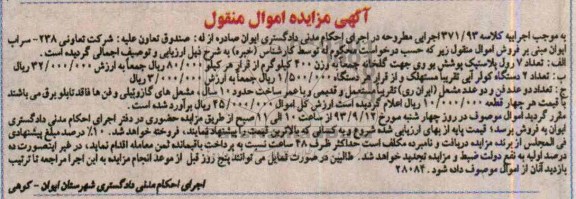 آگهی مزایده اموال منقول
به موجب اجراییه کلاسه ۳۷۱/۹۳ اجرایی مطروحه در اجرای احکام مدنی دادگستری ایوان صادره از له : صندوق تعاون علیه : شرکت تعاونی ۲۳۸- سراب
ایوان مبنی بر فروش اموال منقول زیر که حسب درخواست محکوم له توسط کارشناس (خبره) به شرح ذیل ارزیابی و توصیف اجمالی گردیده است.
الف: تعداد ۷ رول پلاستیک پوشش یو وی جهت گلخانه به وزن ۴۰۰ کیلوگرم از قرار هر کیلو ۸۰/۰۰۰ ریال جمعاً به ارزش ۳۲/۰۰۰/۰۰۰ ریال
ب: تعداد ۲ دستگاه کولر آبی تقریباً مستهلک و از قرار هر دستگاه ۱/۵۰۰/۰۰۰ ریال جمعاً به ارزش ۳/۰۰۰/۰۰۰ ریال
ج) تعداد دو عدد فن و دو عدد مشعل (ایران ری) تقریباً مستعمل و قدیمی و با عمر ساخت حدود ۱۰ سال، مشعل های گازوئیلی و فن ها فاقد تابلو برق می باشند
با قیمت هر چهار قطعه ۱۰/۰۰۰/۰۰۰ ریال اعلام گردیده است ارزش کل اموال ۴۵/۰۰۰/۰۰۰ ریال برآورد شده است.
مقرر گردید اموال موصوف در روز چهار شنبه مورخ ۹۳/۹/۱۲ از ساعت ۱۰ الی ۱۱ صبح از طریق مزایده حضوری در دفتر اجرای احکام مدنی دادگستری
ایوان به فروش برسد؛ قیمت پایه از بهای ارزیابی شده شروع و به کسانی که بالاترین قیمت را پیشنهاد نمایند، فروخته خواهد شد. ۱۰٪ درصد مبلغ پیشنهادی
فی المجلس از برنده مزایده دریافت و نامبرده مکلف است حداکثر ظرف ۴۸ ساعت نسبت به پرداخت باقیمانده ثمن معامله اقدام نماید، در غیر اینصورت ده
درصد اولیه به نفع دولت ضبط و مزایده تجدید خواهد شد. طالبین در صورت تمایل می توانند پنج روز قبل از موعد انجام مزایده به این اجرا مراجعه تا ترتیب
بازدید آنان از اموال موصوف داده شود. ۲۸۰۸۴
اجرای احکام مدنی دادگستری شهرستان ایوان - کوهی